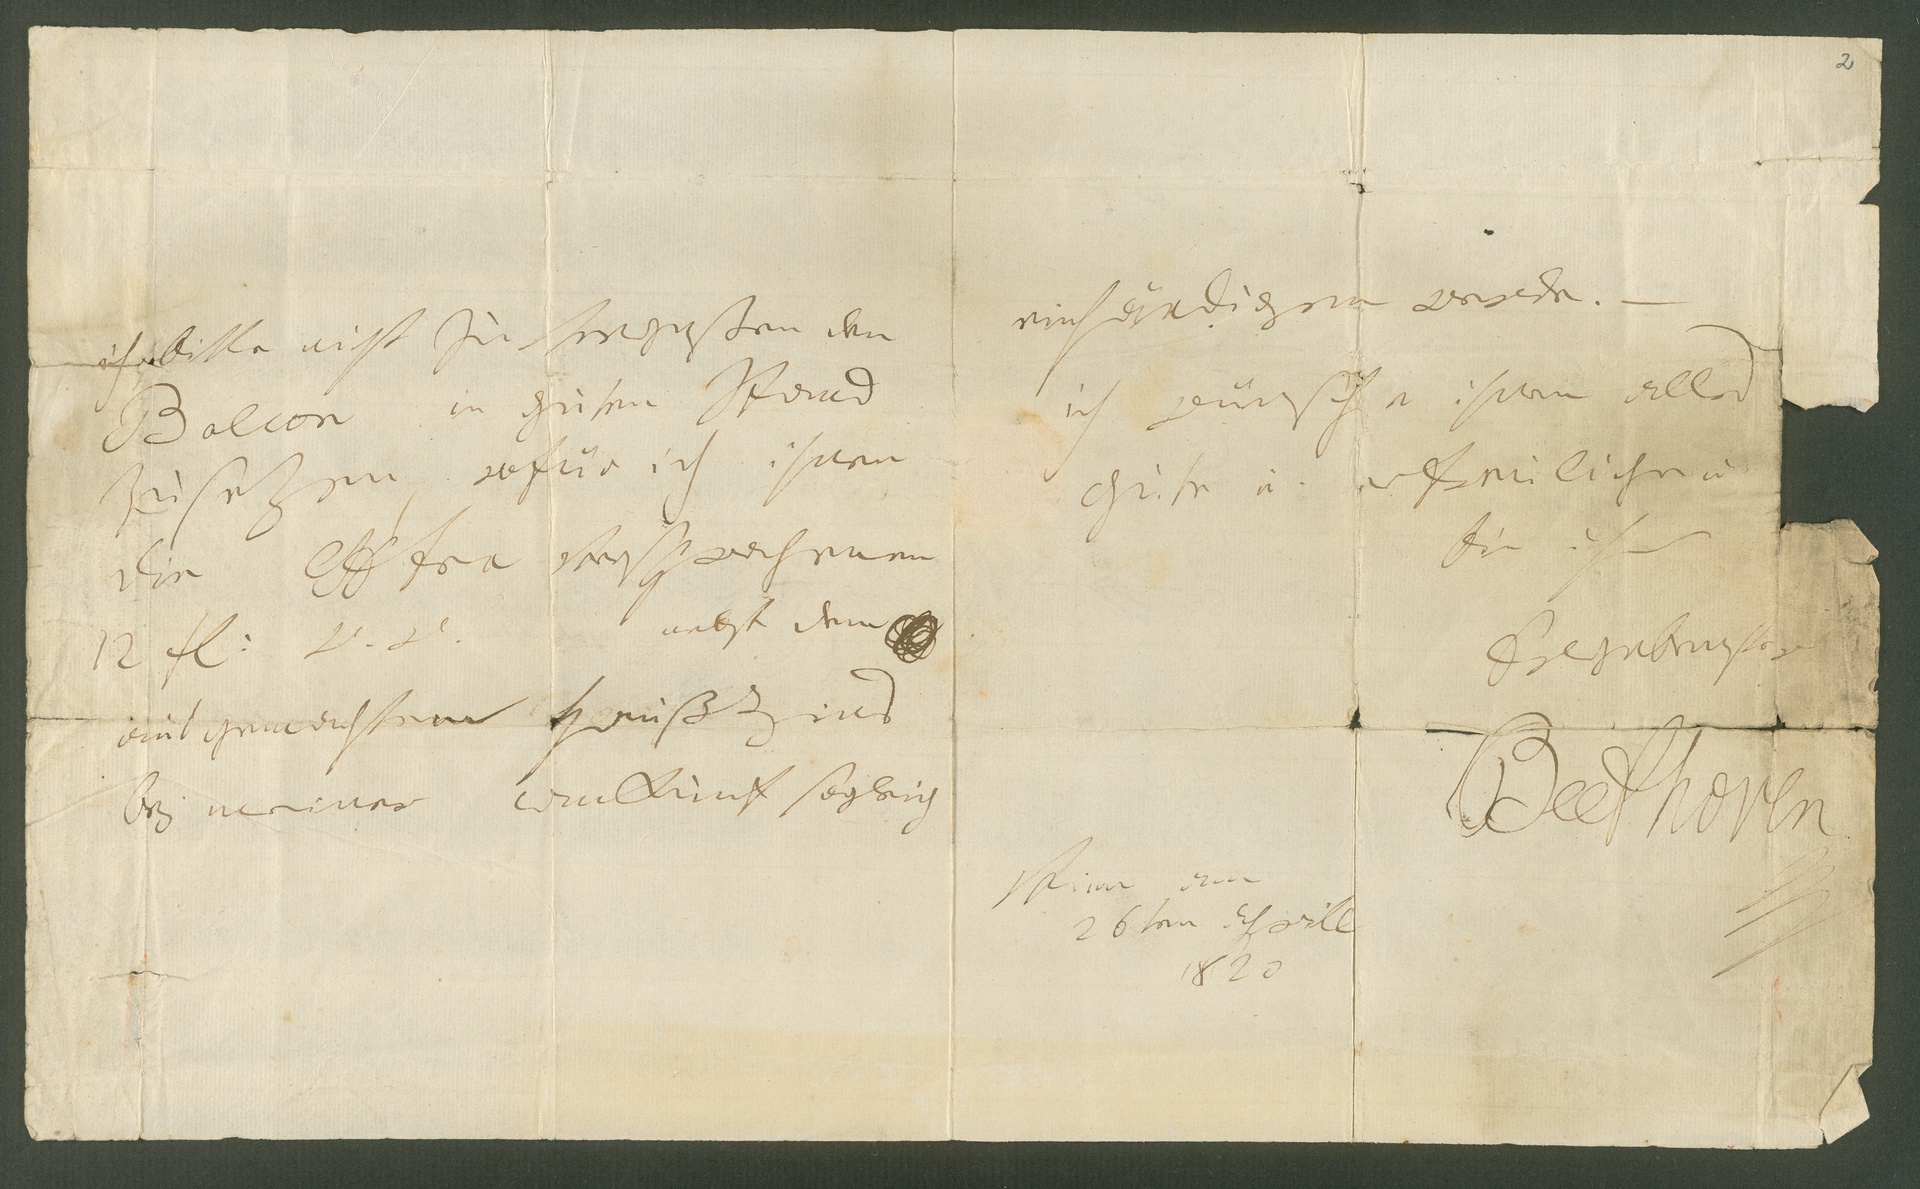 2
ich bitte nicht zu vergessen den
Balcon in guten Stand
zu sezen, wofür ich ihnen
die Extra versprochenen
12 fl: W.W. nebst dem
ausgemachten Haußzinß
bey meiner Ankunft sogleich
einhändigen werde. —
ich wünsche ihnen alles
gute u. erfreuliche u.
bin ihr
Ergebenster
Beethoven
Wien am
26ten April
1820